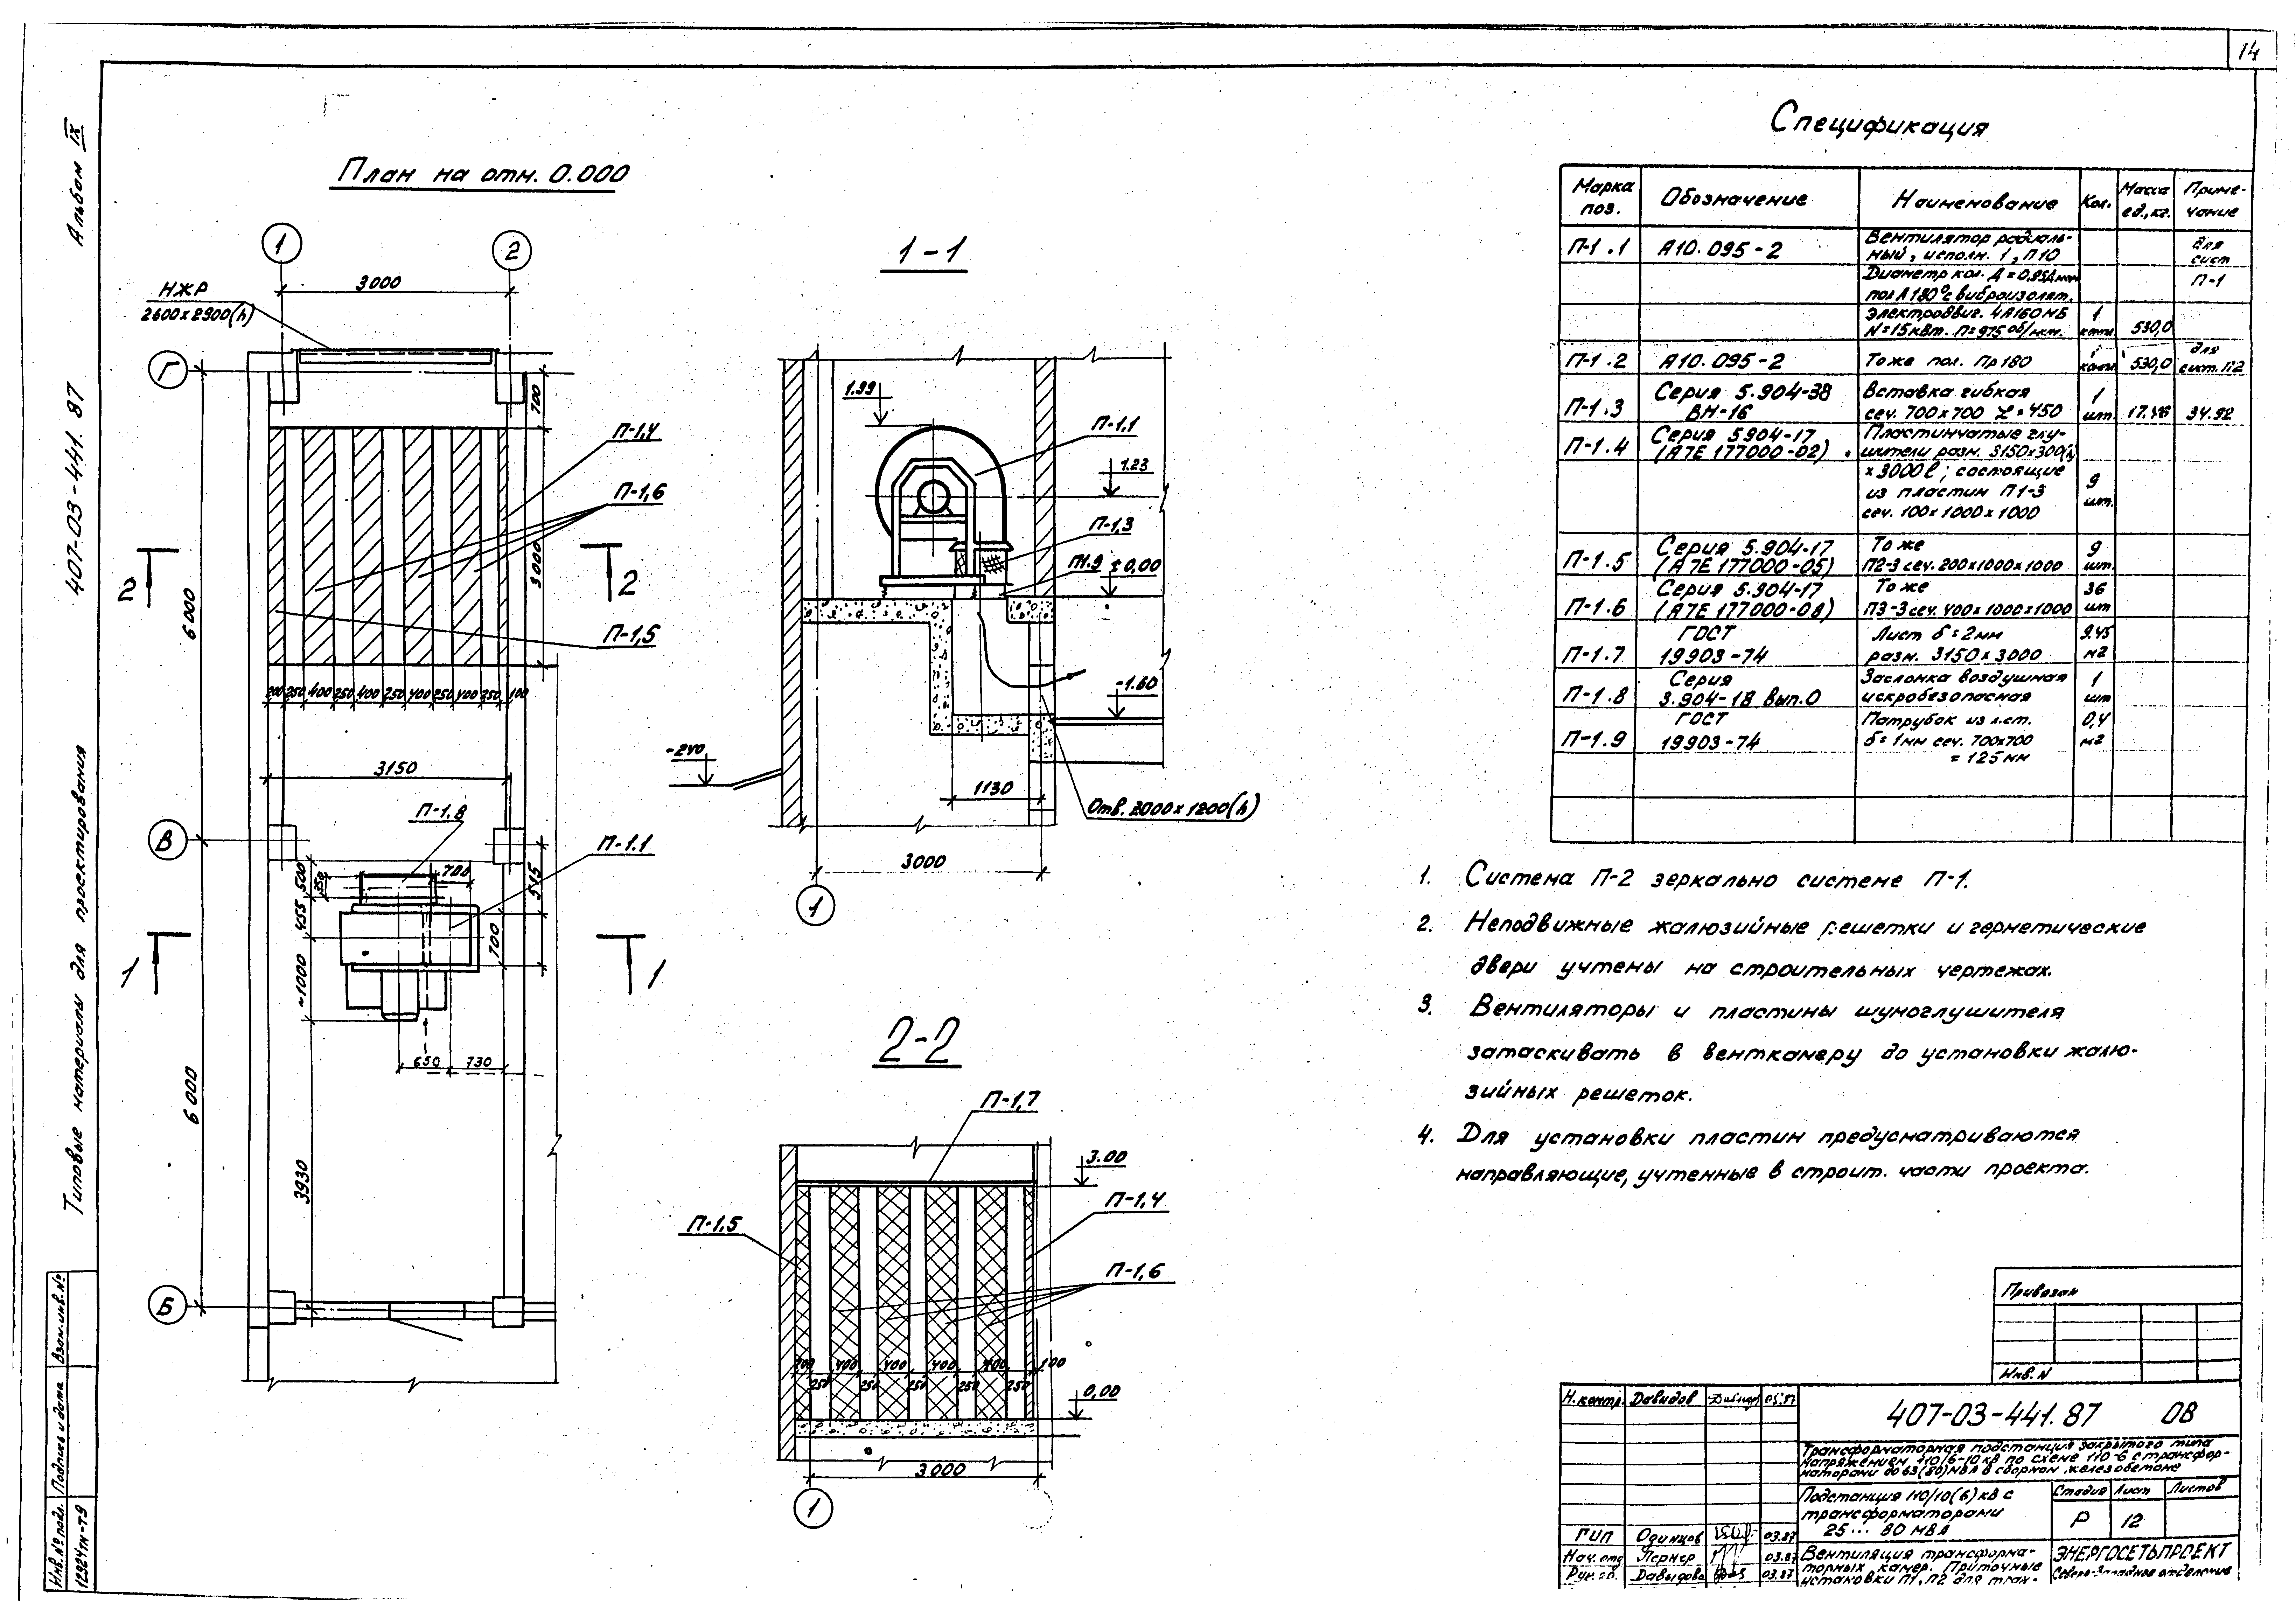 14
Альбом IX
407-03-441.87
Типовые материалы для проектирования
Взам.инв.№
Подпись и дата
Инв.№ подл.
12924тм-т9
План на отм. 0.000
1
2
3000
НЖР
2600х2900(h)
Г
700
П-1,4
П-1,6
3000
2
2
П-1,5
6000
200 250 400 250 400 250 400 250 400 250 100
3150
П-1.8
В
П-1.1
500
250
700
515
455
700
~1000
1
1
650
730
6000
3930
Б
1-1
1.99
П-1,1
1.23
П-1,3
П1.9
±0,00
-1.60
-240
1130
Отв. 2000х1200(h)
3000
1
2-2
П-1,7
3.00
П-1,4
П-1,5
П-1,6
200 400 400 400 400 100
250 250 250 250 250
0,00
3000
1
Спецификация
Марка поз.
Обозначение
Наименование
Кол.
Масса ед.,кг.
Приме-чание
П-1.1 А10.095-2 Вентилятор радиаль- для
ный, исполн. 1, П10 сист
Диаметр кол. Д=0.95Дном П-1
пол Л180° с виброизолят.
Электродвиг. 4А160М6 1
N=15квт. П=975 об/мин. компл. 530,0
П-1.2 А10.095-2 То же пол. Пр180 1 компл. 530,0 для сист. П2
П-1.3 Серия 5.904-38 Вставка гибкая 1
ВН-16 сеч. 700х700 L=450 шт. 17.46 34.92
П-1.4 Серия 5.904-17 Пластинчатые глу-
(А7Е 177000-02) шители разм. 3150х300(h)
х3000l; состоящие 9
из пластин П1-3 шт.
сеч. 100х1000х1000
П-1.5 Серия 5.904-17 То же 9
(А7Е 177000-05) П2-3 сеч. 200х1000х1000 шт.
П-1.6 Серия 5.904-17 То же 36
(А7Е 177000-08) П3-3 сеч. 400х1000х1000 шт
П-1.7 ГОСТ Лист δ=2мм 9.45
19903-74 разм. 3150х3000 м2
П-1.8 Серия Заслонка воздушная 1
3.904-18 Вып.0 искробезопасная шт
П-1.9 ГОСТ Патрубок из л.ст. 0,4
19903-74 δ=1мм сеч. 700х700 м2
=125мм
1. Система П-2 зеркально системе П-1.
2. Неподвижные жалюзийные решетки и герметические
двери учтены на строительных чертежах.
3. Вентиляторы и пластины шумоглушителя
затаскивать в венткамеру до установки жалю-
зийных решеток.
4. Для установки пластин предусматриваются
направляющие, учтенные в строит. части проекта.
Привязан
Инв.N
Н.контр. Давидов 03.87
407-03-441.87 ОВ
Трансформаторная подстанция закрытого типа
напряжением 110/6-10 кв по схеме 110-6 с трансфор-
маторами до 63(80)мва в сборном железобетоне
Подстанция 110/10(6)кв с
трансформаторами
25... 80 мва
Стадия Лист Листов
Р 12
ГИП Одинцов 03.87
Нач.отд Лернер 03.87
Рук.гр. Давыдова 03.87
Вентиляция трансформа-
торных камер. Приточные
установки П1, П2 для тран-
ЭНЕРГОСЕТЬПРОЕКТ
Северо-Западное отделение